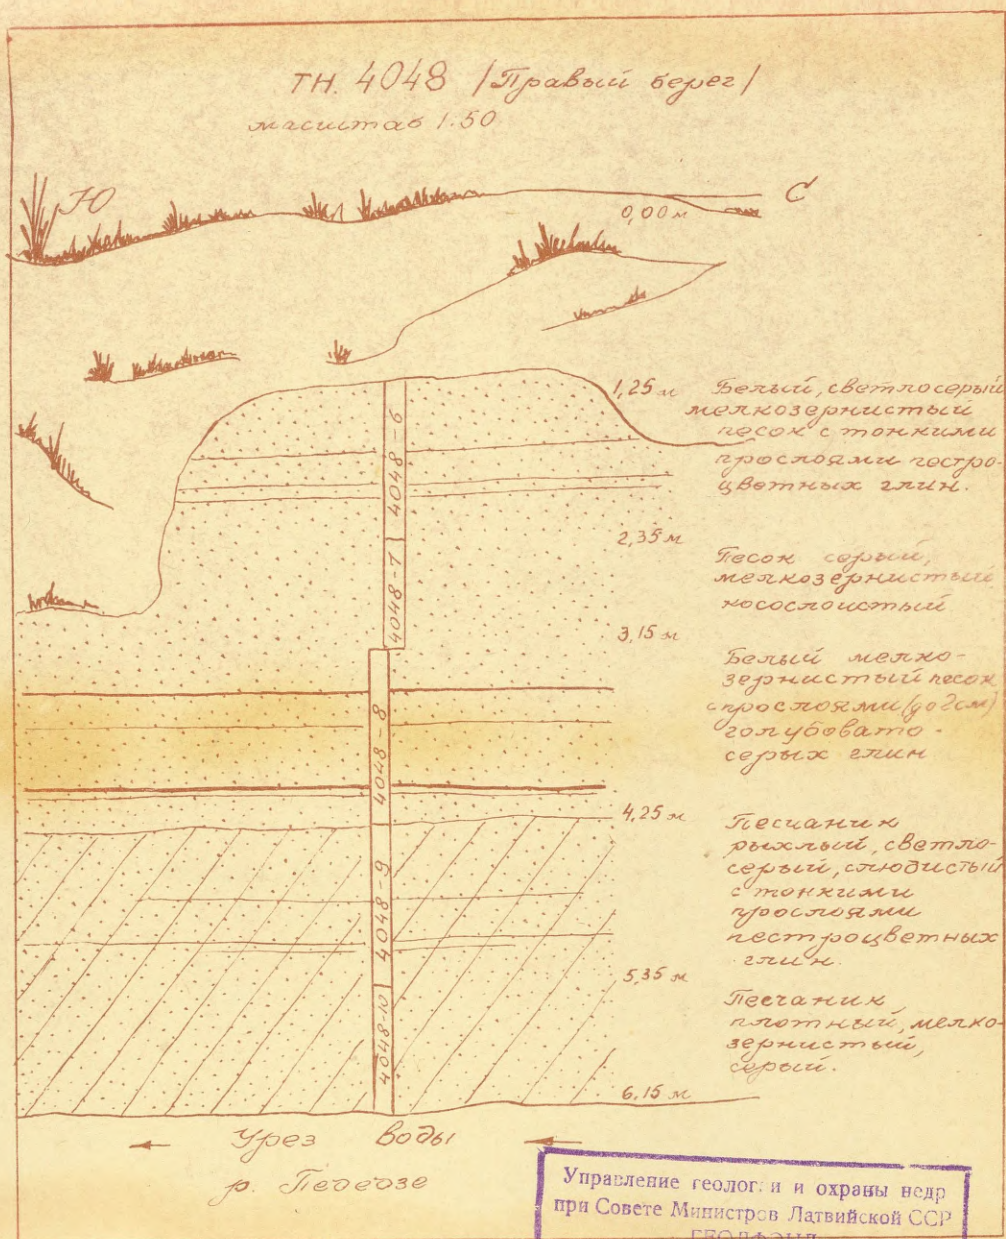 ТН. 4048 /Правый берег/
масштаб 1:50
Ю
С
0,00 м
1,25 м
Белый, светлосерый
мелкозернистый
песок с тонкими
прослоями пестро-
цветных глин.
4048-6
2,35 м
Песок серый,
мелкозернистый
косослоистый
4048-7
3,15 м
Белый мелко-
зернистый песок
с прослоями (до 2см)
голубовато-
серых глин
4048-8
4,25 м
Песчаник
рыхлый, светло-
серый, слюдистый
с тонкими
прослоями
пестроцветных
глин.
4048-9
5,35 м
Песчаник
плотный, мелко-
зернистый,
серый.
4048-10
6,15 м
Урез воды
р. Педедзе
Управление геологии и охраны недр
при Совете Министров Латвийской ССР
ГЕОЛФОНД